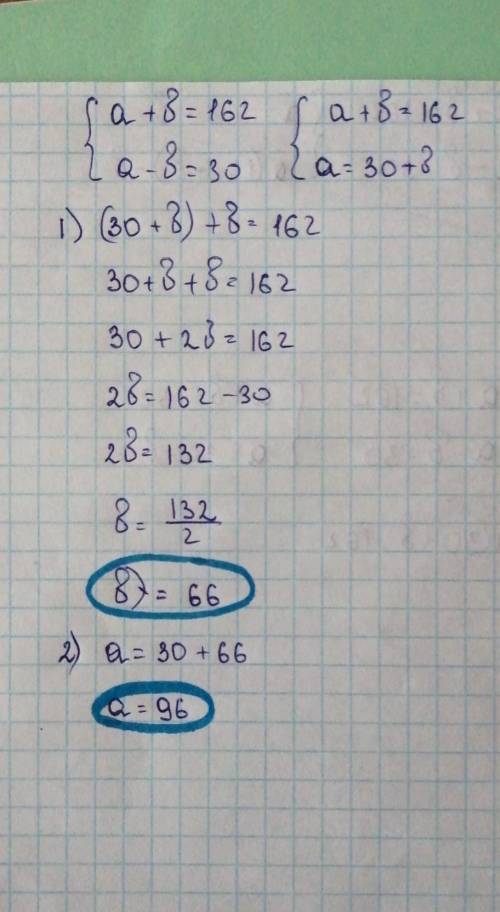 { a + b = 162 { a + b = 162
a - b = 30 a = 30 + b
1) (30 + b) + b = 162
30 + b + b = 162
30 + 2b = 162
2b = 162 - 30
2b = 132
b = 132/2
b = 66
2) a = 30 + 66
a = 96